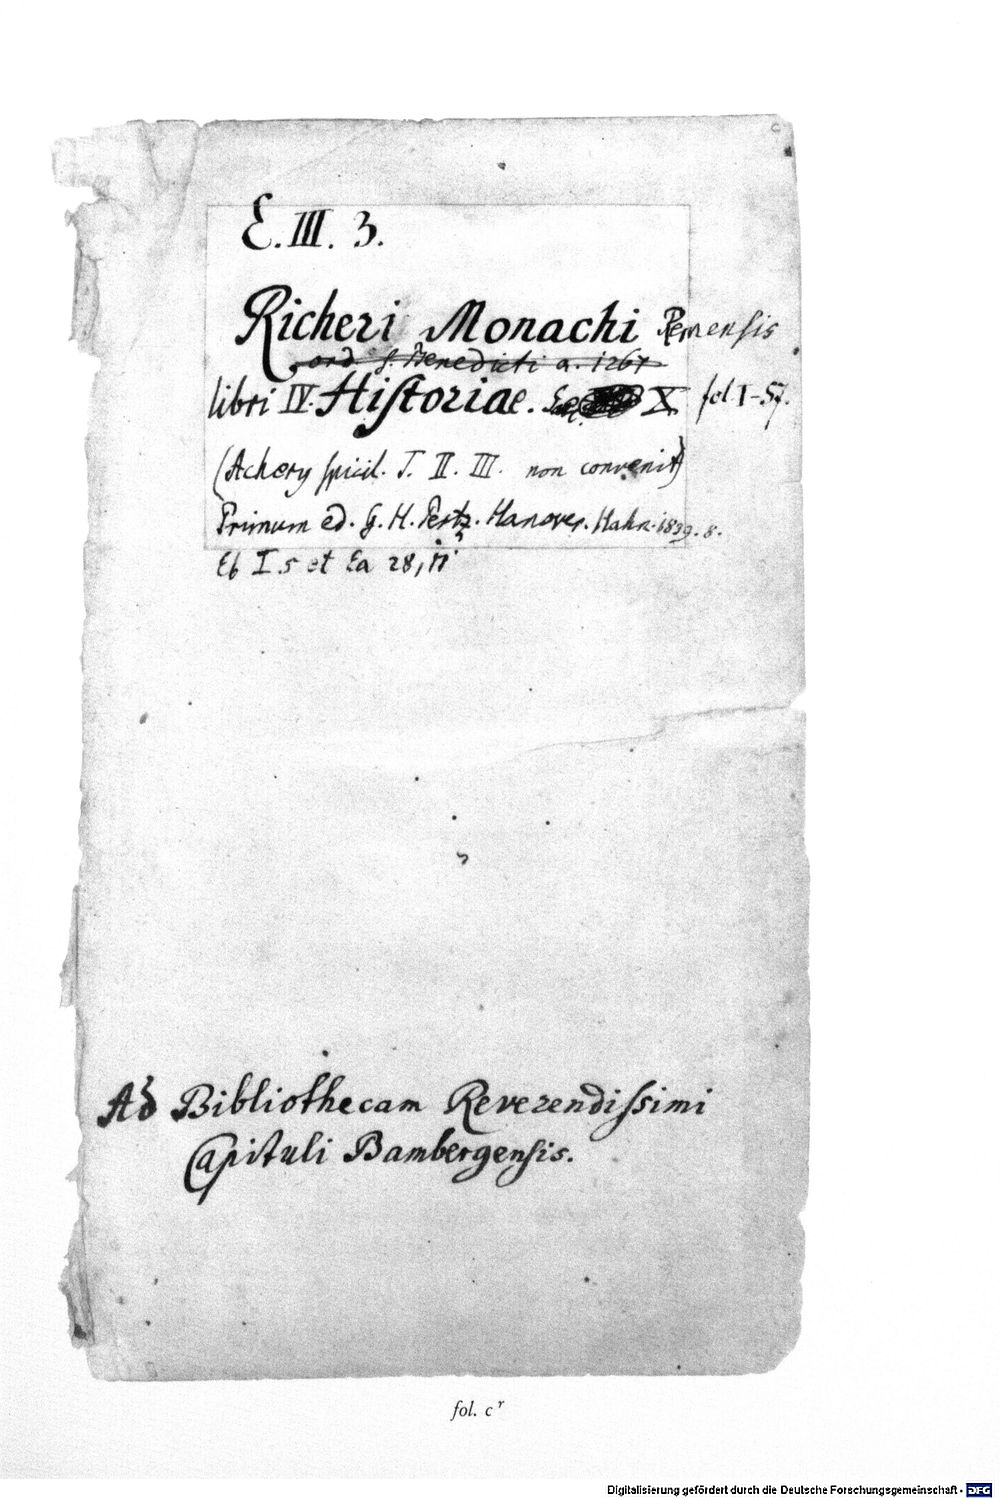 c
E. III. 3.
Richeri Monachi Remensis
ord. S. Benedicti a. 1267
libri IV. Historiae. Sec. X fol. 1-57.
(Achery spicil. T. II. III. non convenit)
Primum ed. G. H. Pertz. Hanover. Hahn. 1839. 8.
Eb I.5 et Ea 28,
Ad Bibliothecam Reverendissimi
Capituli Bambergensis.
fol. c r
Digitalisierung gefördert durch die Deutsche Forschungsgemeinschaft - DFG